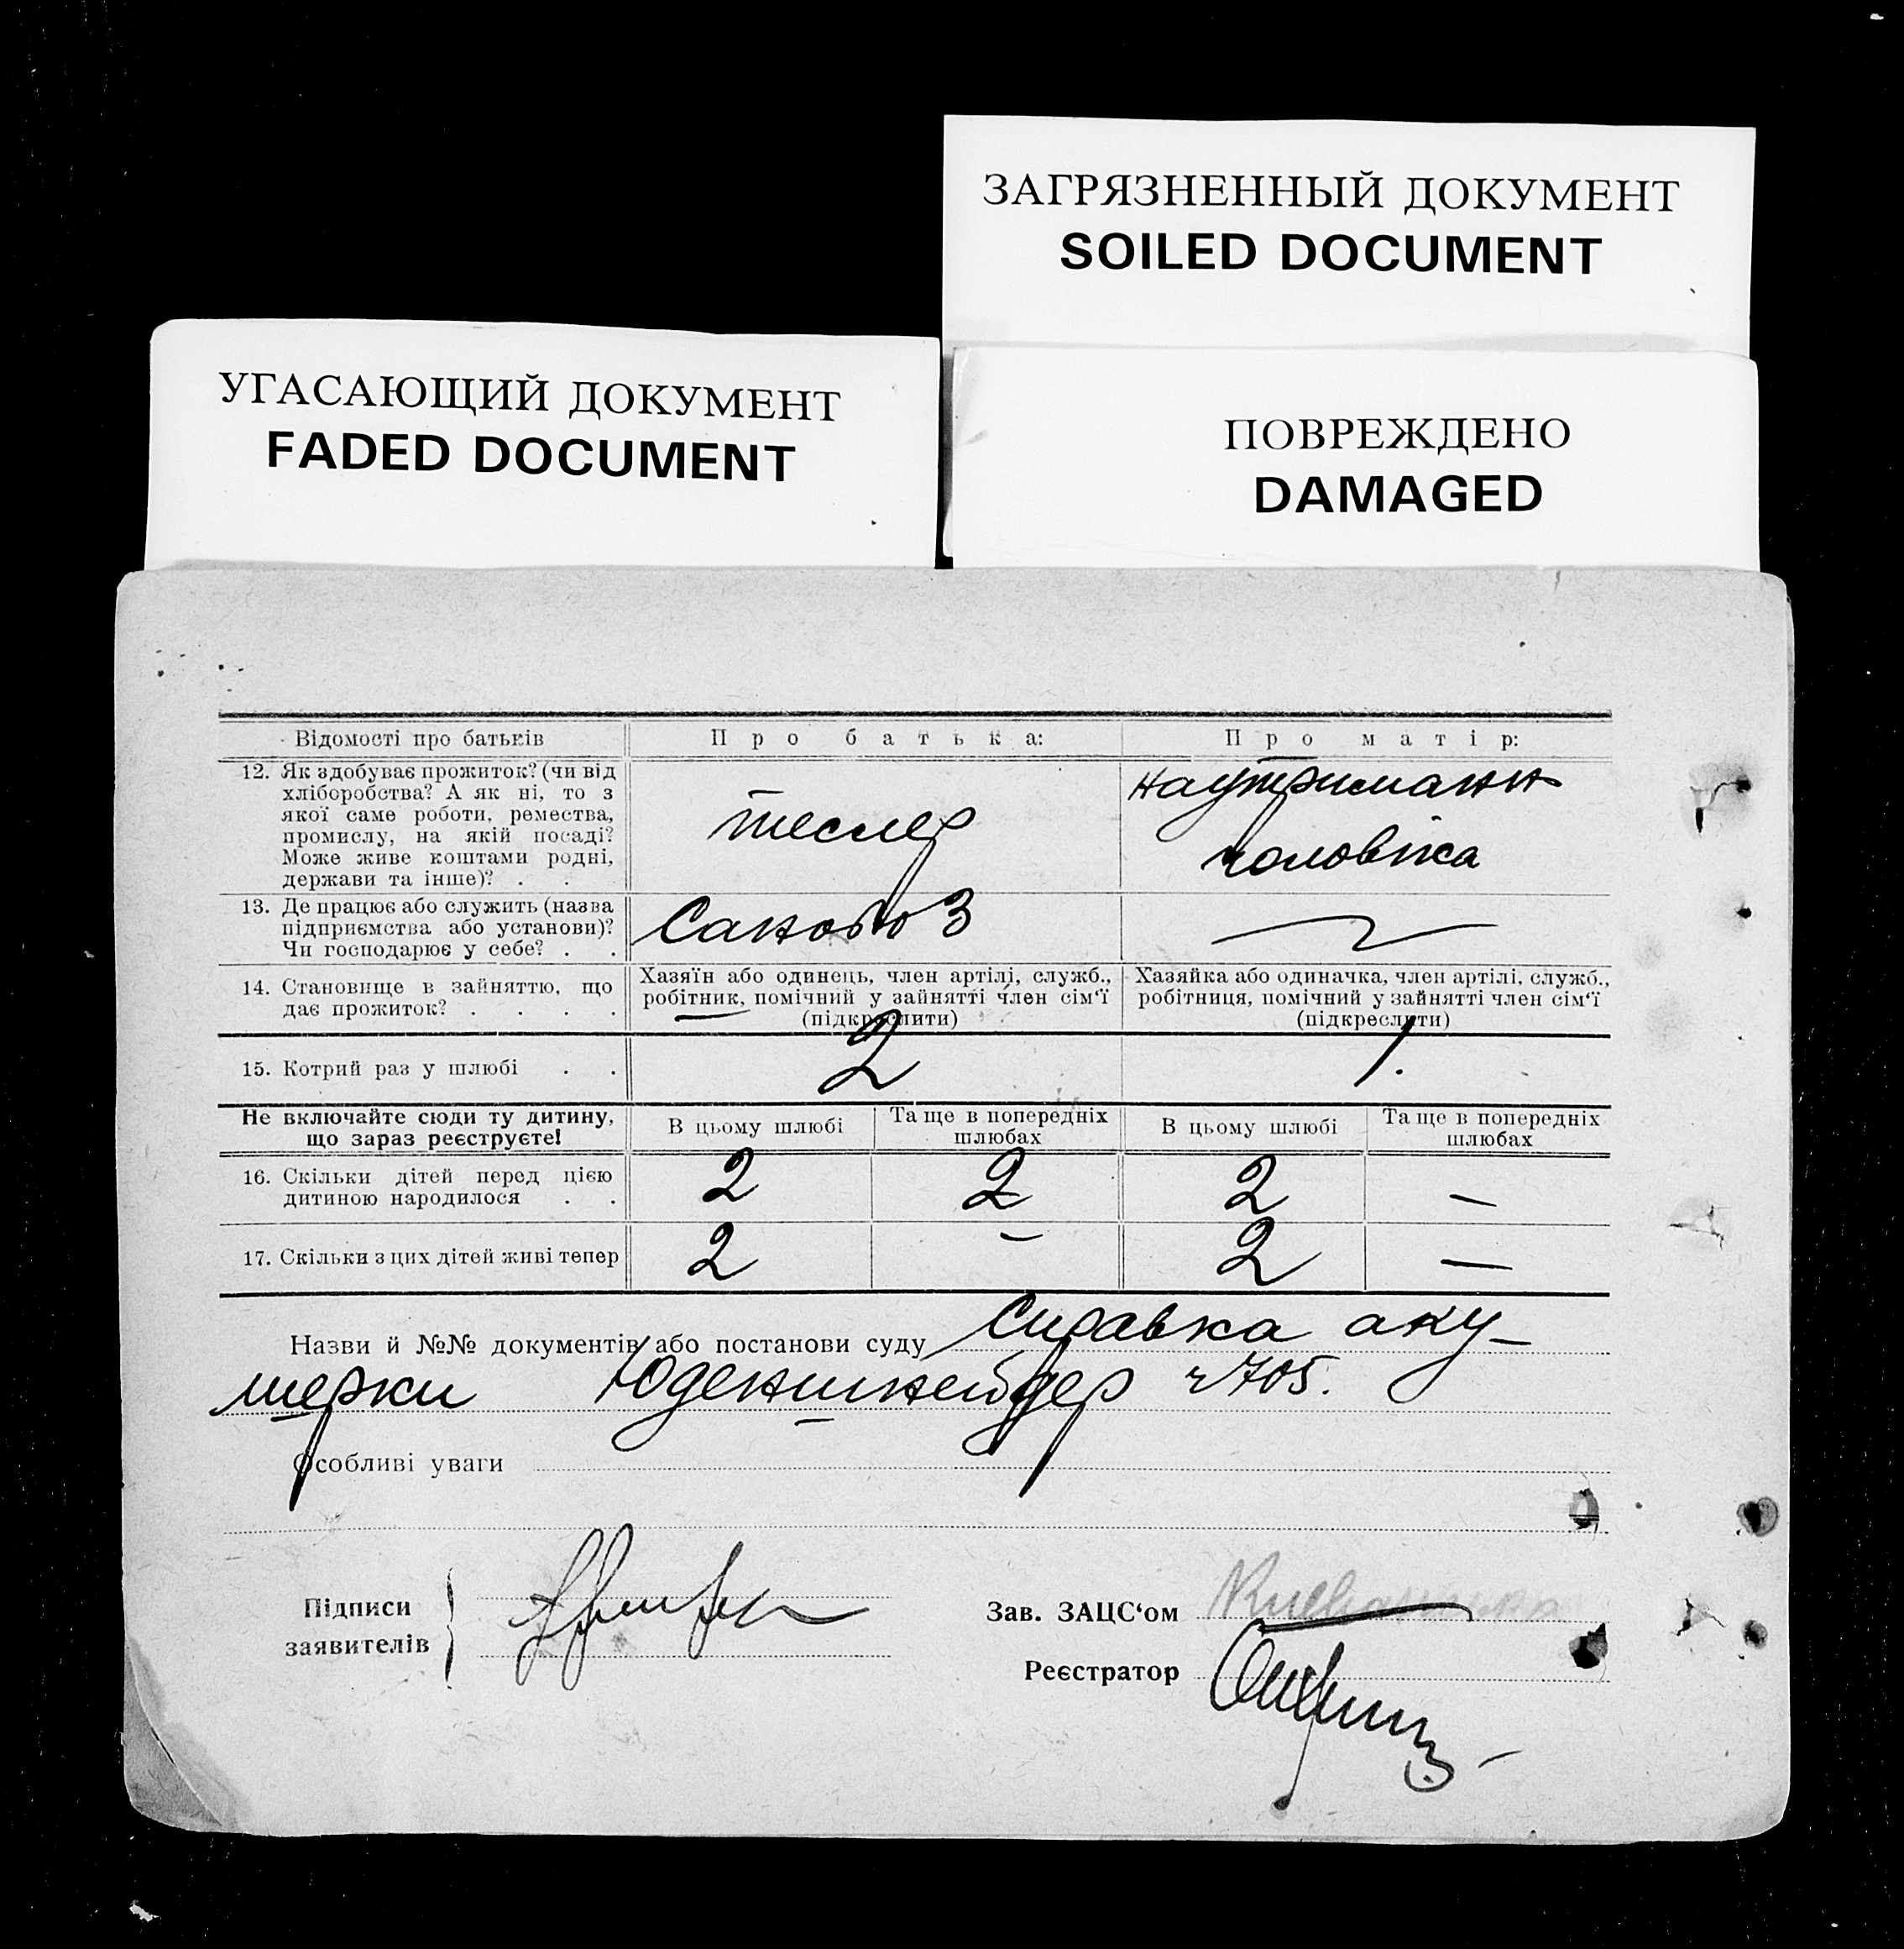 ЗАГРЯЗНЕННЫЙ ДОКУМЕНТ
SOILED DOCUMENT
УГАСАЮЩИЙ ДОКУМЕНТ
FADED DOCUMENT
ПОВРЕЖДЕНО
DAMAGED
Відомості про батьків
Про батька:
Про матір:
12. Як здобуває прожиток? (чи від
хліборобства? А як ні, то з
якої саме роботи, ремества,
промислу, на якій посаді?
Може живе коштами родні,
держави та інше)? . .
тесляр
на утриманн
чоловіка
13. Де працює або служить (назва
підприємства або установи)?
Чи господарює у себе? . .
14. Становище в зайняттю, що
дає прожиток? . . . .
Хазяїн або одинець, член артілі, служб.,
робітник, помічний у зайнятті член сім'ї
(підкреслити)
Хазяйка або одиначка, член артілі, служб.,
робітниця, помічний у зайнятті член сім'ї
(підкреслити)
15. Котрий раз у шлюбі . .
2
1.
Не включайте сюди ту дитину,
що зараз реєструєте!
В цьому шлюбі
Та ще в попередніх
шлюбах
В цьому шлюбі
Та ще в попередніх
шлюбах
16. Скільки дітей перед цією
дитиною народилося . .
2
2
2
—
17. Скільки з цих дітей живі тепер
2
—
2
—
Назви й №№ документів або постанови суду Справка аку-
шерки Юденшнейдер ч 705.
Особливі уваги
Підписи
заявителів
Зав. ЗАЦС'ом
Реєстратор